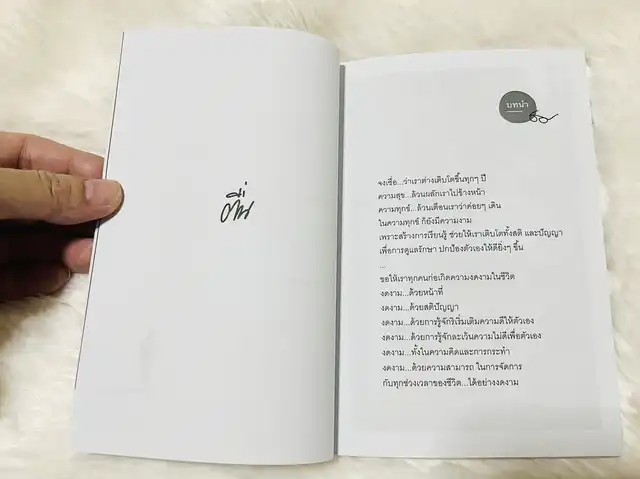 ตื่น
บทนำ
จงเชื่อ...ว่าเราต่างเติบโตขึ้นทุกๆ ปี
ความสุข...ล้วนผลักเราไปข้างหน้า
ความทุกข์...ล้วนเตือนเราว่าค่อยๆ เดิน
ในความทุกข์ ก็ยังมีความงาม
เพราะสร้างการเรียนรู้ ช่วยให้เราเติบโตทั้งสติ และปัญญา
เพื่อการดูแลรักษา ปกป้องตัวเองให้ดียิ่งๆ ขึ้น
...
ขอให้เราทุกคนก่อเกิดความงดงามในชีวิต
งดงาม...ด้วยหน้าที่
งดงาม...ด้วยสติปัญญา
งดงาม...ด้วยการรู้จักริเริ่มเติมความดีให้ตัวเอง
งดงาม...ด้วยการรู้จักละเว้นความไม่ดีเพื่อตัวเอง
งดงาม...ทั้งในความคิดและการกระทำ
งดงาม...ด้วยความสามารถ ในการจัดการ
กับทุกช่วงเวลาของชีวิต...ได้อย่างงดงาม